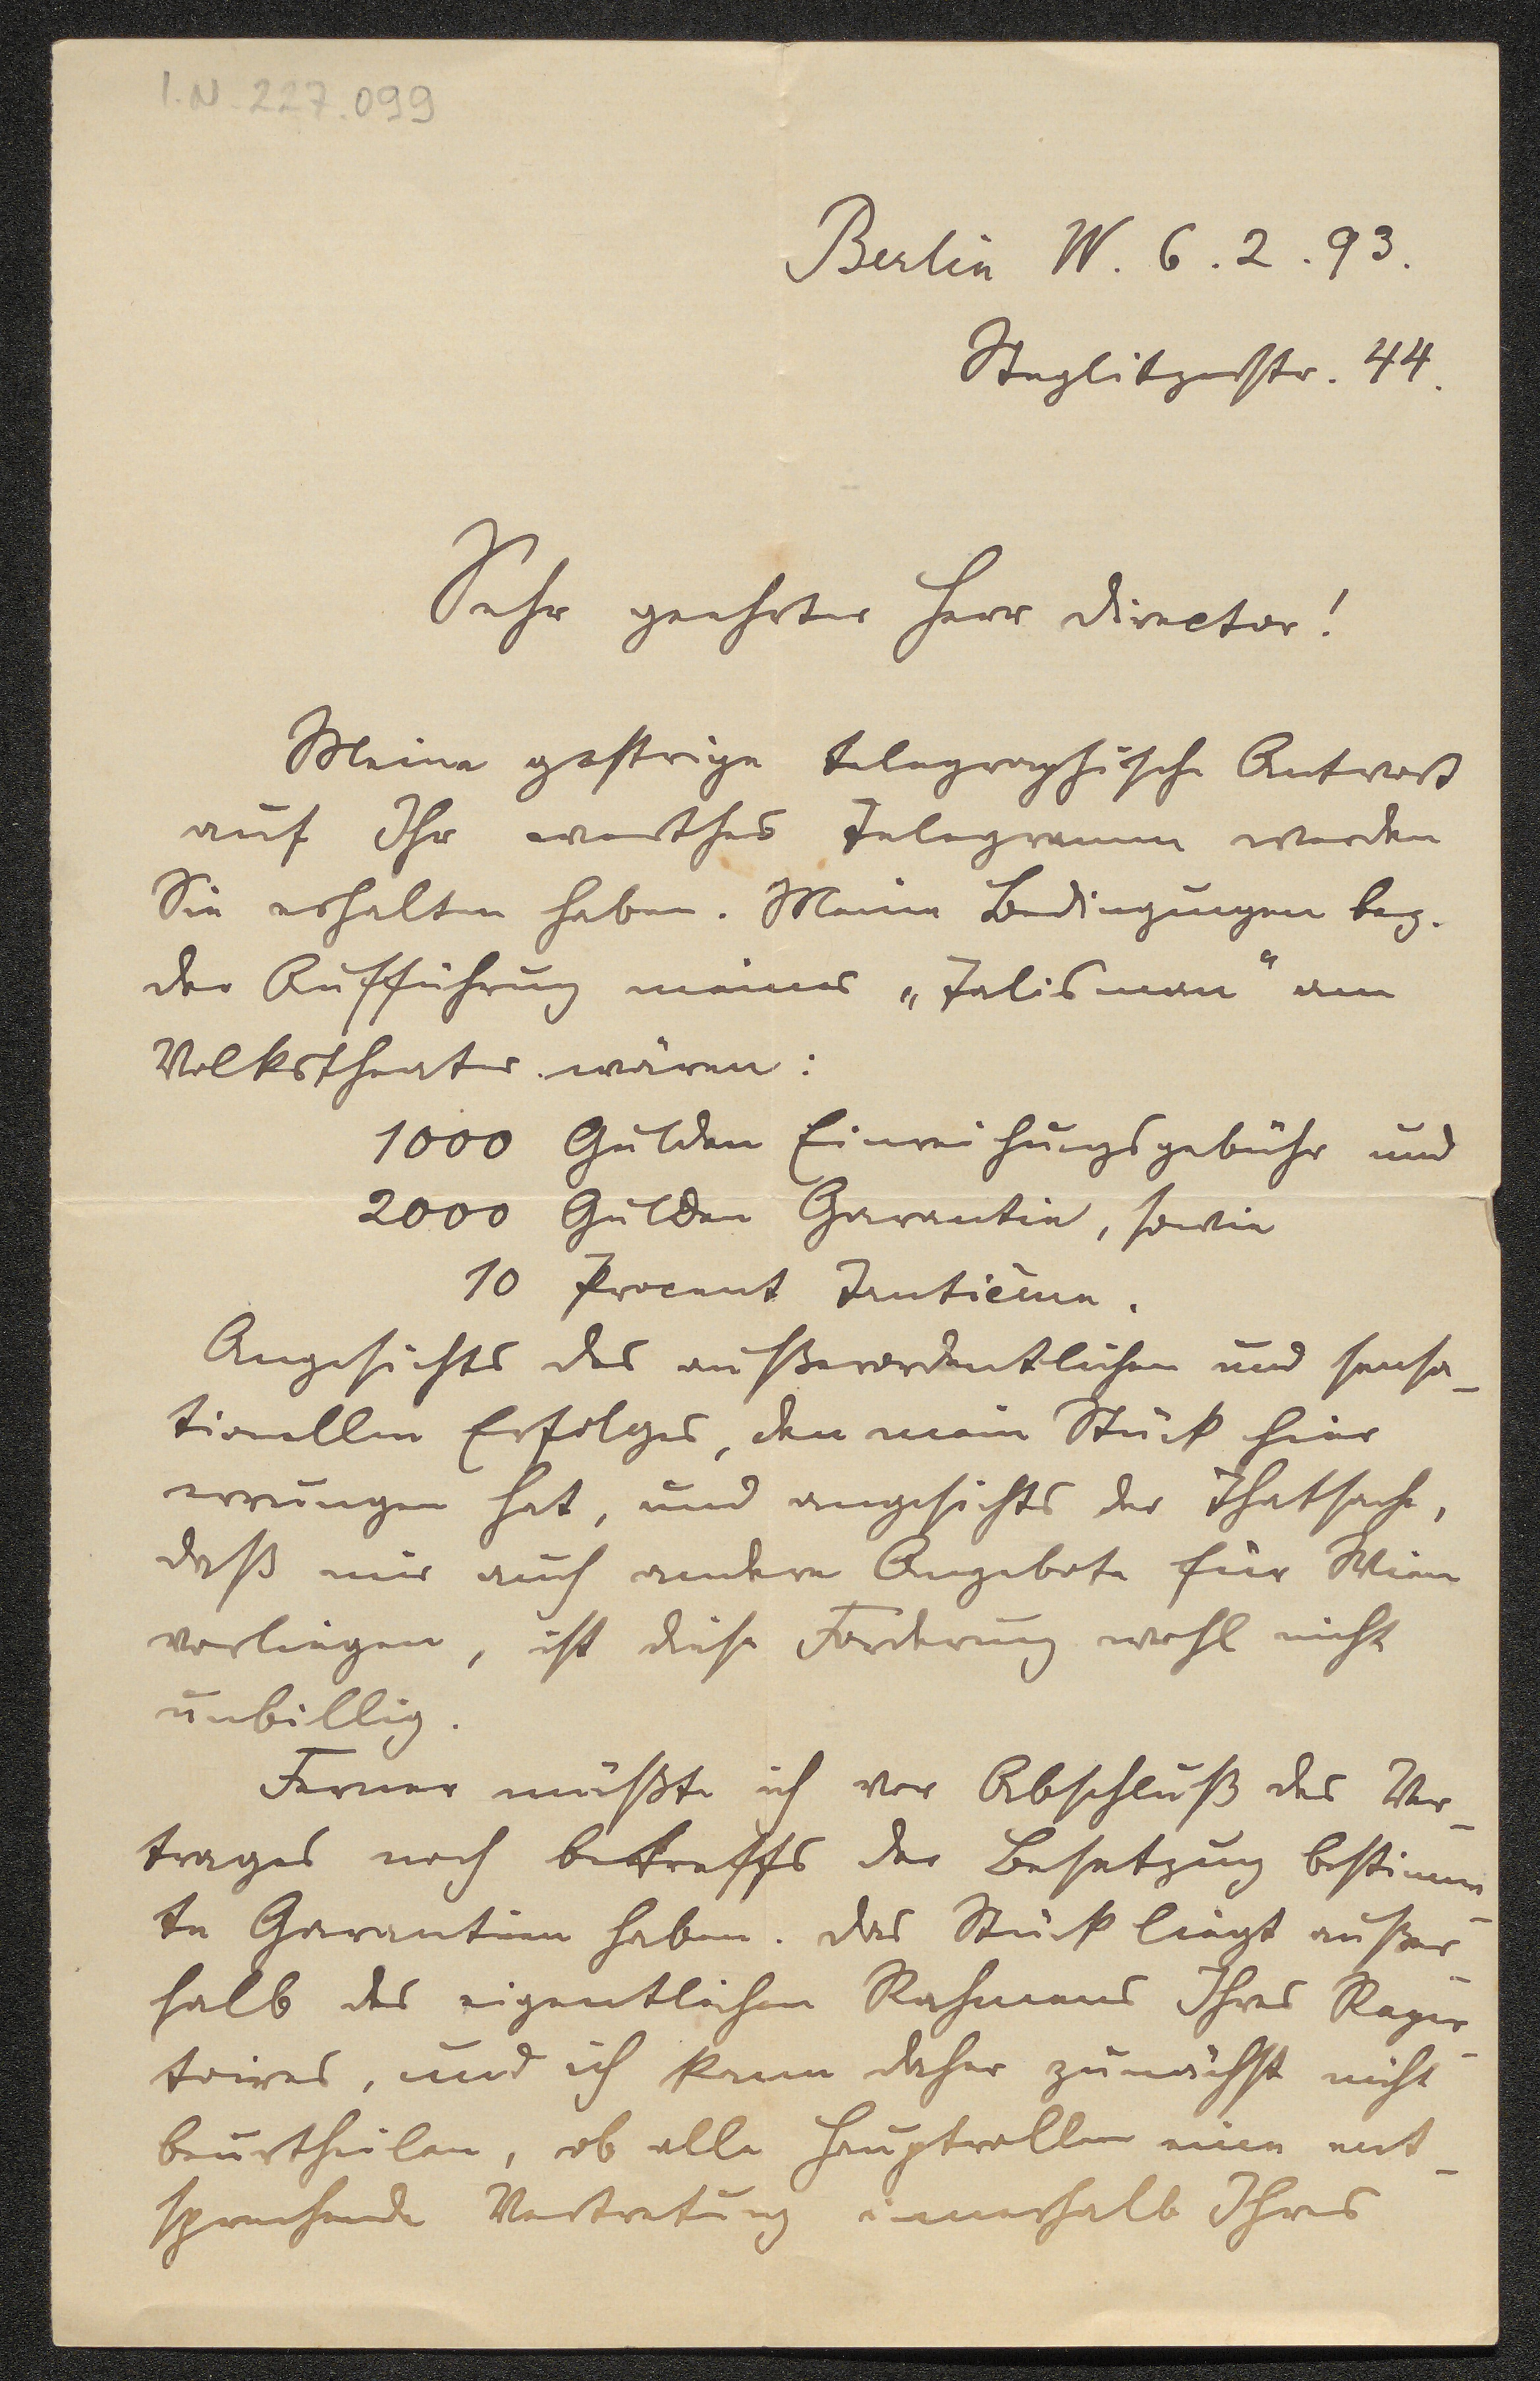 I.N. 227.099
Berlin W. 6.2.93.
Steglitzerstr. 44.
Sehr geehrter Herr Director!
Meine gestrige telegraphische Antwort
auf Ihr werthes Telegramm werden
Sie erhalten haben. Meine Bedingungen bez.
der Aufführung meines „Talisman“ am
Volkstheater wären:
1000 Gulden Einreichungsgebühr und
2000 Gulden Garantie, sowie
10 Procent Tantième.
Angesichts des außerordentlichen und sensa-
tionellen Erfolges, den mein Stück hier
errungen hat, und angesichts der Thatsache,
daß mir auch andere Angebote für Wien
vorliegen, ist diese Forderung wohl nicht
unbillig.
Ferner müßte ich vor Abschluß des Ver-
trages noch betreffs der Besetzung bestimm-
te Garantien haben. Das Stück liegt außer-
halb des eigentlichen Rahmens Ihres Reper-
toires, und ich kann daher zunächst nicht
beurtheilen, ob alle Hauptrollen eine ent-
sprechende Vertretung innerhalb Ihres